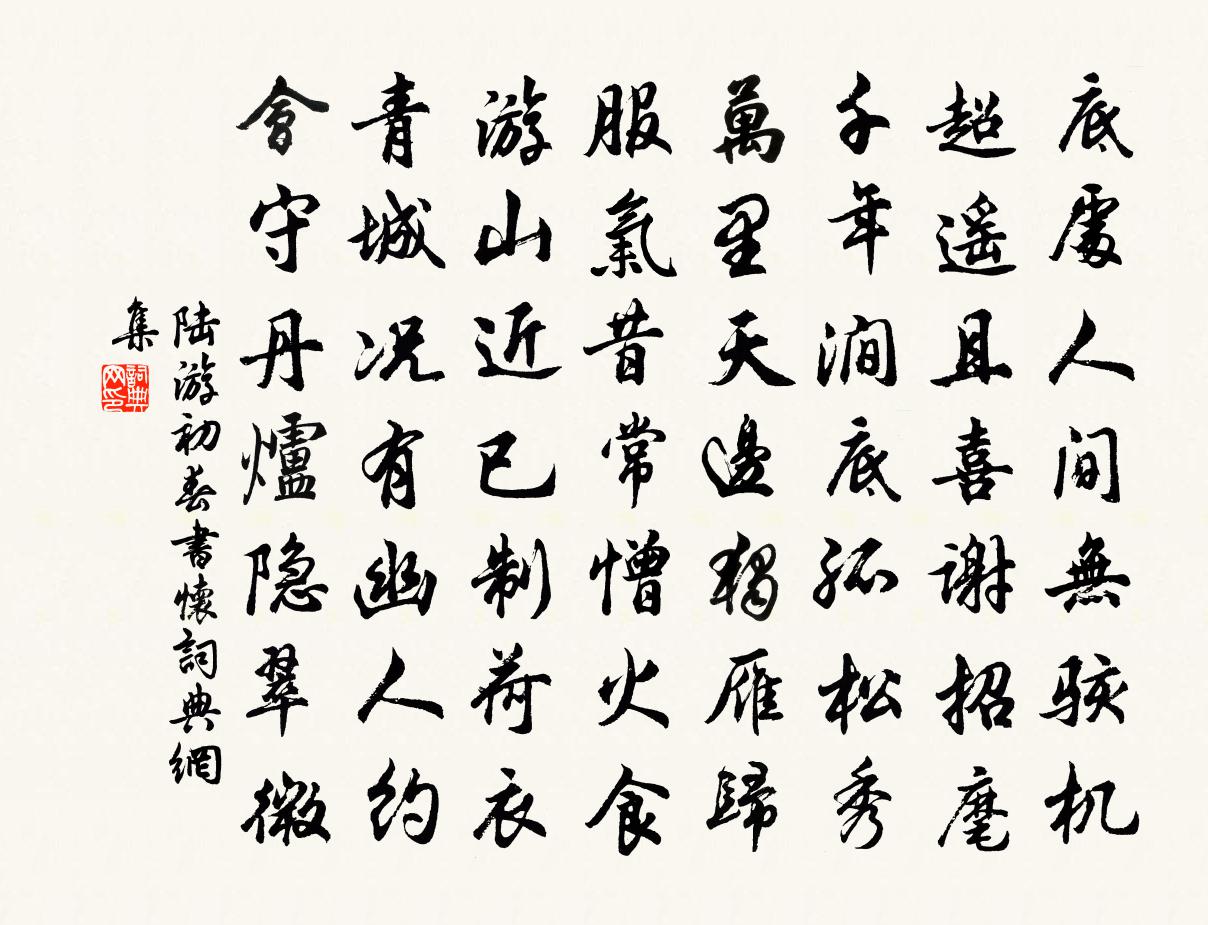 底處人间無駭机
超遥且喜谢招麾
千年澗底孤松秀
萬里天邊獨雁歸
服氣昔常憎火食
游山近已制荷衣
青城况有幽人约
會守丹爐隐翠微
陆游初春書懷詞典網
集
詞典
网印